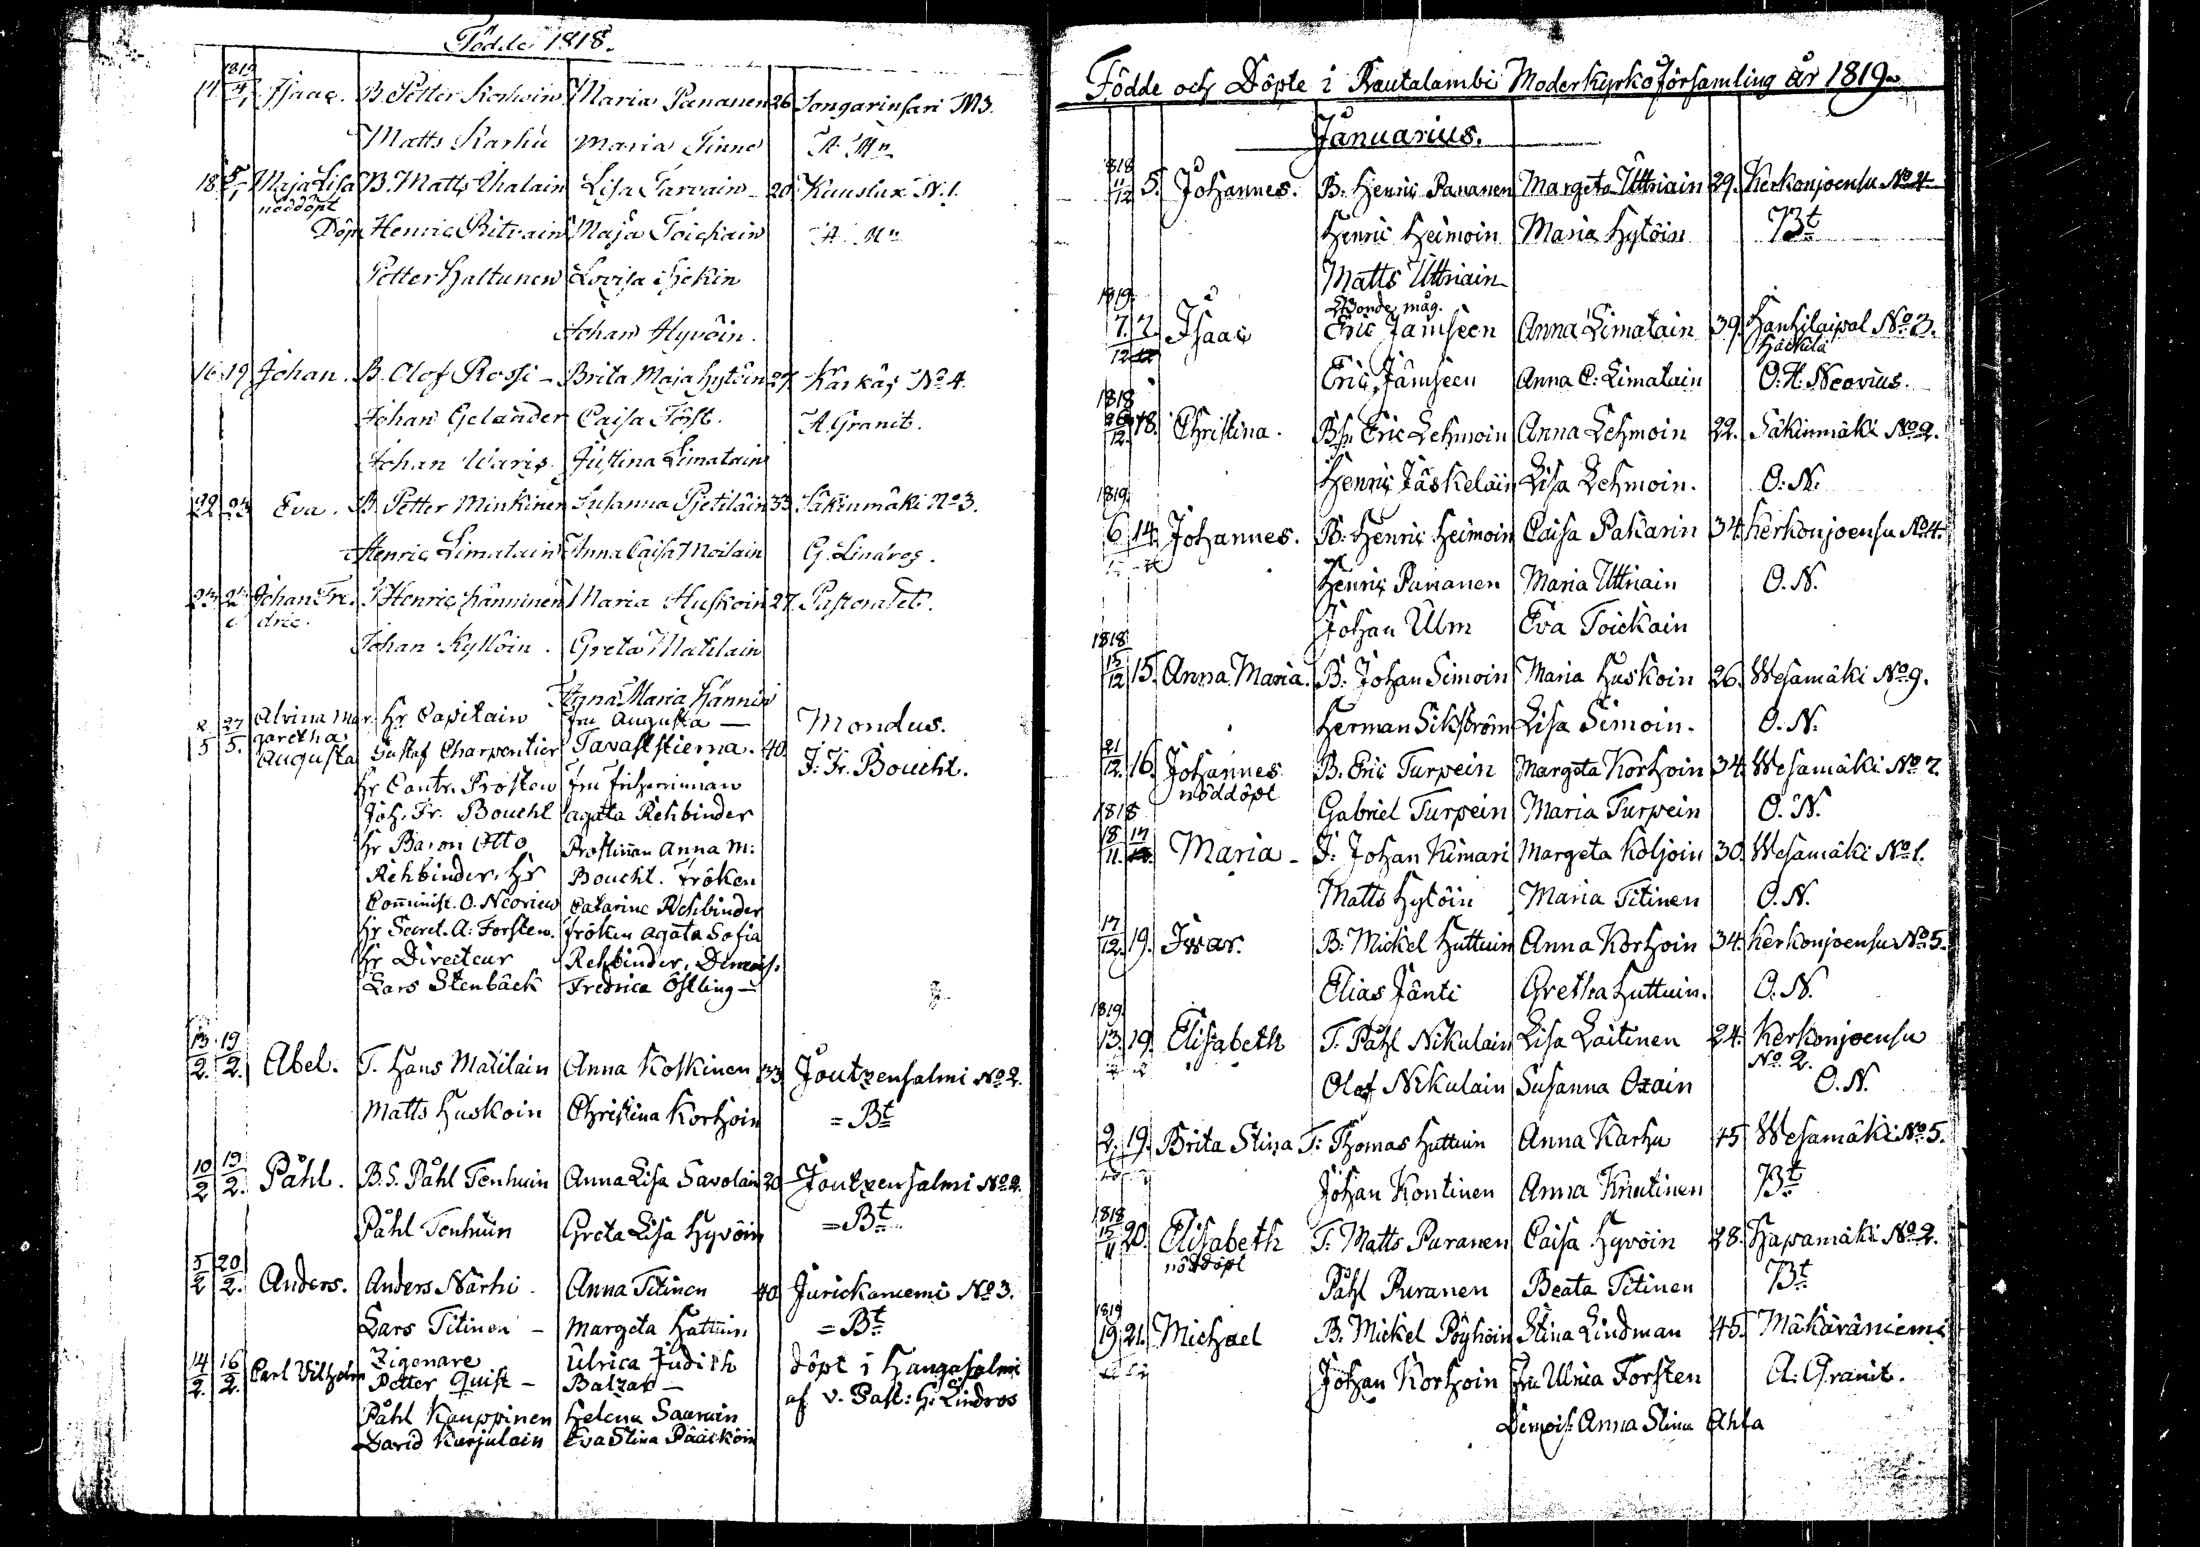 Födde 1818.
1819
14 4/1 Isaac. B. Petter Korhoin Maria Pananen 26 Songarinsari N3.
Matts Karhu Maria Finne
18 5/1 Maja Lisa B. Matts Ihalain Lisa Tarvain 20 Kuuslax N.1.
nöddöpt
Döpt Henric Ritvain Maja Toickain
Petter Haltunen Lovisa
Johan Hyvöin.
16 19 Johan. B. Olof Rossi - Brita Maja Hytöin 27. Kärkäs No 4.
Johan Gelander Caisa Först. A. Granit.
Johan Waris Justina Limatain
22 23 Eva. B. Petter Minkinen Susanna Pjetiläin 33 Säkinmäki No 3.
Henric Limatain Anna Caisa Moilain G. Lindros.
Johan Fre- Henric Hänninen Maria Huskoin 27. Pastoratet.
dric.
Johan Kyllöin. Greta Matilain
Anna Maria Hännin
2/5 27/5. Alvina Mar- Hr Capitain Fru Augusta — Mondus.
garetha
Augusta Gustaf Charpentier Tavaststierna. 40 J. Fr. Boucht.
Hr Contr. Prosten Fru Friherrinnan
Joh. Fr. Boucht agata Rehbinder
Hr Baron Otto Prostinnan Anna M:
Rehbinder, Hr Boucht. Fröken
Comminist. O. Neovius Catarine Rehbinder
Hr Secret. A: Forsten. fröken Agata Sofia
Hr Directeur Rehbinder, Demois.
Lars Stenbäck Fredrica Östling —
13/2. 19/2. Abel. T. Hans Matilain Anna Koskinen 33 Joutzensalmi No 2.
Matts Huskoin Christina Korhoin = Bt
10/2 19/2. Påhl. B.S. Påhl Tenhuin Anna Lisa Savolain 20 Joutzensalmi No 2.
Påhl Tenhuin Greta Lisa Hyvöin = Bt
5/2 20/2. Anders. Anders Närhi. Anna Titinen 40 Jurickaniemi No 3.
Lars Titinen - Margeta Hattuin = Bt
14/2. 16/2. Carl Vilhelm Zigenare Ulrica Judith döpt i Hangasalmi
Petter Quist - Balzar — af v. Past: H. Lindros
Påhl Kauppinen Helena Saarnin
David Karjulain Eva Stina Pääcköin
Födde och Döpte i Rautalambi Moderkyrko församling år 1819.
Januarius.
1818
11/12 5. Johannes. B. Henric Pananen Margeta Uttriain 29. Kerkonjoensu No 4
Henric Heimoin Maria Hytöin Bt
Matts Uttriain
1819. Bonde måg.
7. 7. Isaac Eric Jämseen Anna Limatain 39. Hankilaipal No 3.
12 Häckilä
Eric Jämseen Anna C: Limatain O. H. Neovius.
1818
26/12. 18. Christina. Bsn Eric Lehmoin Anna Lehmoin 22. Säkinmäki No 2.
Henric Jäskeläin Lisa Lehmoin. O. N.
1819.
6 14. Johannes. B. Henric Heimoin Caisa Pakarin 34. Kerkonjoensu No 4.
Henric Pananen Maria Uttriain O. N.
Johan Ulm Eva Toickain
1818
15/12 15. Anna Maria. B. Johan Simoin Maria Huskoin 26. Wesamäki No 9.
Herman Sikström Lisa Simoin. O. N.
21/12. 16. Johannes B. Eric Turpein Margeta Korhoin 34. Wesamäki No 7.
nöddöpt
1818 Gabriel Turpein Maria Turpein O. N.
18/11. 17 Maria - I. Johan Kimari Margeta Koljoin 30. Wesamäki No 1.
Matts Hytöin Maria Titinen O. N.
17/12. 19. Iwar. B. Mickel Huttuin Anna Korhoin 34. Kerkonjoensu No 5.
Elias Jänti Gretha Huttuin. O. N.
1819.
13. 19. Elisabeth T. Påhl Nikulain Lisa Laitinen 24. Kerkonjoensu
No 2.
Olof Nikulain Susanna Ozain O. N.
2. 19. Brita Stina T: Thomas Huttuin Anna Karhu 45 Wesamäki No 5.
Johan Kontinen Anna Knutinen Bt
1818
15/11 20. Elisabeth T. Matts Puranen Caisa Hyvöin 28. Hapamäki No 2.
nöddöpt
Påhl Puranen Beata Titinen Bt
1819
19 21. Michael B. Mickel Pöyhöin Stina Lindman 45. Mäkäräniemi
Johan Korhoin Fru Ulrica Forsten A. Granit.
Demois: Anna Stina Ahla